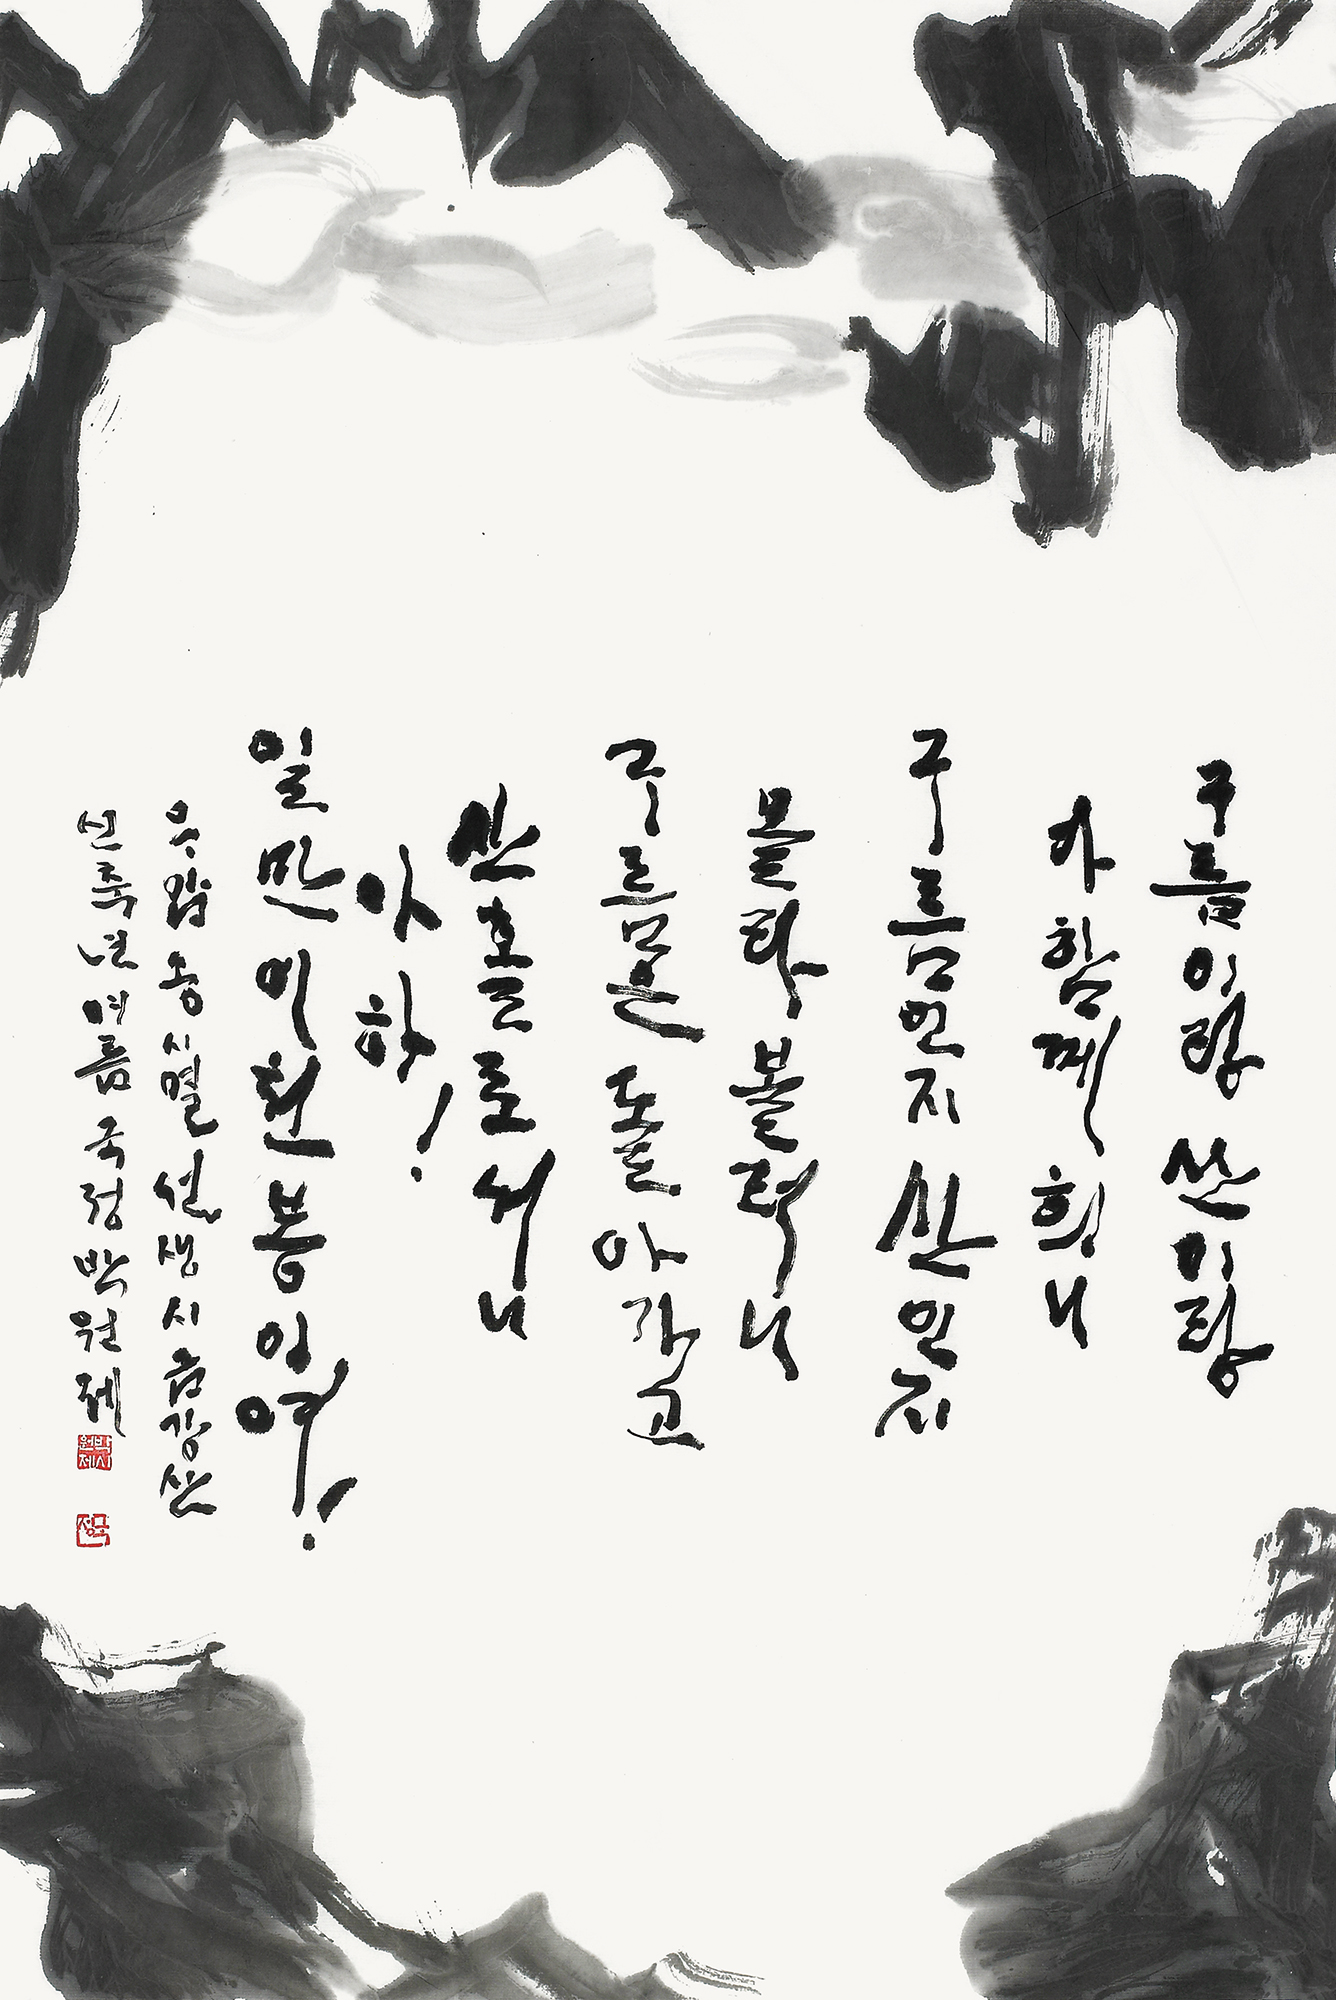 구름이랑 산이랑
다 함께 희니
구름인지 산인지
몰라 볼러니
구름은 돌아가고
산 홀로 서니
아하!
일만 이천 봉이여!
우암 송시열 선생 시 금강산
신축년 여름 국정 박원제
국정